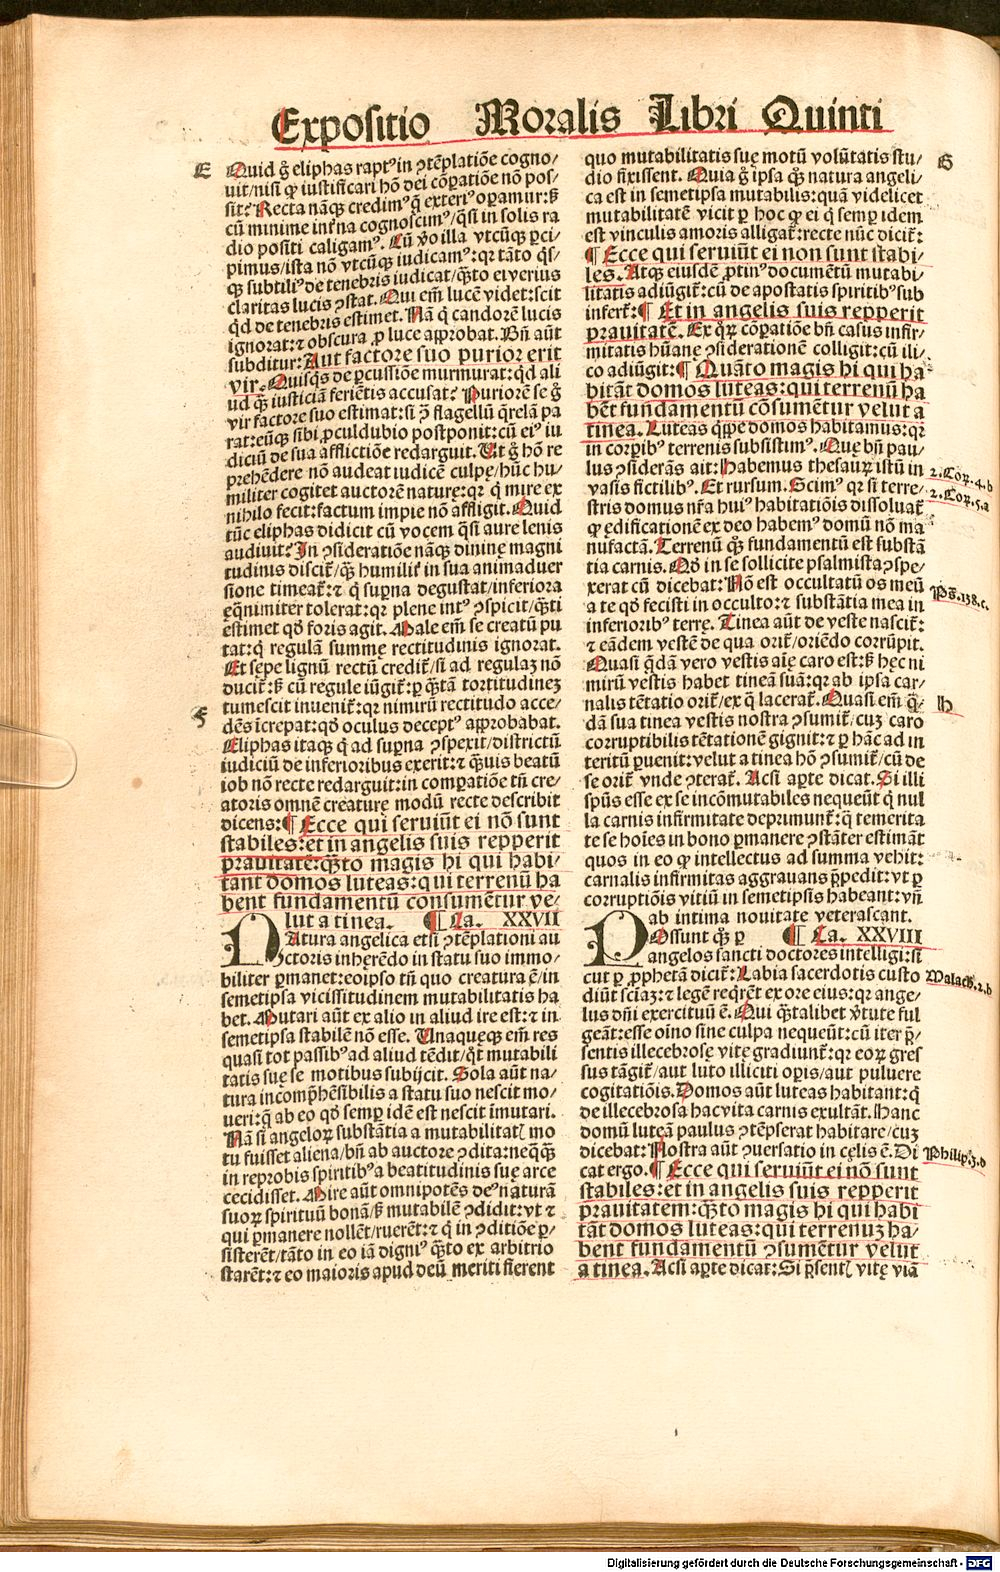 Expositio Moralis Libri Quinti
E
Quid g̃ eliphas rapt᷒ in ꝯtẽplatiõe cogno/
uit/nisi ꝙ iustificari hõ dei cõꝑatiõe nõ pos/
sit? Recta nãqꝫ credim᷒ q̃ exteri᷒ oꝑamur: sꝫ
cũ minime int̃na cognoscim᷒/q̃si in solis ra
dio positi caligam᷒. Cũ ṽo illa vtcũqꝫ ꝑci/
pimus/ista nõ vtcũqꝫ iudicam᷒: qꝛ tãto q̇s/
qꝫ subtili᷒ de tenebris iudicat/q̃ꝫto ei verius
claritas lucis ꝯstat. Qui em̃ lucẽ videt: scit
qͥd de tenebris estimet. Nã q̇ candorẽ lucis
ignorat: ⁊ obscura ꝓ luce approbat. Bñ aũt
subditur: Aut factore suo purior erit
vir. Quisq̇s de ꝑcussiõe murmurat: qͥd ali
ud q̃ꝫ iusticiã feriẽtis accusat? Puriorẽ se g̃
vir factore suo estimat: si ꝯ̃ flagellũ q̃relã pa
rat: eũqꝫ sibi ꝓculdubio postponit: cũ ei᷒ iu
diciũ de sua afflictiõe redarguit. Ut g̃ hõ re
prehẽdere nõ audeat iudicẽ culpę/hũc hu/
militer cogitet auctorẽ naturę: qꝛ q̇ mire ex
nihilo fecit: factum impie nõ affligit. Quid
tũc eliphas didicit cũ vocem q̃si aure lenis
audiuit? In ꝯsideratiõe nãqꝫ diuinę magni
tudinis discit̃/q̃ꝫ humilit̃ in sua animaduer
sione timeat̃: ⁊ q̇ suꝑna degustat/inferiora
eq̃nimiter tolerat: qꝛ plene int᷒ ꝯspicit/q̃ꝫti
ęstimet qđ foris agit. Male em̃ se creatũ pu
tat: q̇ regulã summę rectitudinis ignorat.
Et sępe lignũ rectũ credit̃/si ad regulaꝫ nõ
ducit̃: sꝫ cũ regule iũgit̃: ꝑ q̃ꝫtã tortitudineꝫ
tumescit inuenit̃: qꝛ nimirũ rectitudo acce/
F
dẽs ĩcrepat: qđ oculus decept᷒ approbabat.
Eliphas itaqꝫ q̇ ad suꝑna ꝯspexit/districtũ
iudiciũ de inferioribus exerit: ⁊ q̃ꝫuis beatũ
iob nõ recte redarguit: in comꝑatiõe tñ cre/
atoris omnẽ creaturę modũ recte describit
dicens: ¶ Ecce qui seruiũt ei nõ sunt
stabiles: et in angelis suis repperit
prauitatẽ: q̃ꝫto magis hi qui habi/
tant domos luteas: qui terrenũ ha
bent fundamentũ consumẽtur ve/
lut a tinea. ¶ Ca. XXVII
NAtura angelica etsi ꝯtẽplationi au
ctoris inhęrẽdo in statu suo immo/
biliter ꝑmanet: eoipso tñ quo creatura ẽ/in
semetipsa vicissitudinem mutabilitatis ha
bet. Mutari aũt ex alio in aliud ire est: ⁊ in
semetipsa stabilẽ nõ esse. Unaquęqꝫ em̃ res
quasi tot passib᷒ ad aliud tẽdit/qͦt mutabili
tatis suę se motibus subijcit. Sola aũt na/
tura incomp̃hẽsibilis a statu suo nescit mo/
ueri: q̃ ab eo qđ semꝑ idẽ est nescit ĩmutari.
Nã si angeloꝝ substãtia a mutabilitatꝭ mo
tu fuisset aliena/bñ ab auctore ꝯdita: neq̃qꝫ
in reprobis spiritib᷒ a beatitudinis suę arce
cecidisset. Mire aũt omnipotẽs de᷒ naturã
suoꝝ spirituũ bonã/sꝫ mutabilẽ ꝯdidit: vt ⁊
qui ꝑmanere nollẽt/ruerẽt: ⁊ q̇ in ꝯditiõe ꝑ/
sisterẽt/tãto in eo iã digni᷒ q̃ꝫto ex arbitrio
starẽt: ⁊ eo maioris apud deũ meriti fierent
quo mutabilitatis suę motũ volũtatis stu/
G
dio fixissent. Quia g̃ ipsa q̃ꝫ natura angeli/
ca est in semetipsa mutabilis: quã videlicet
mutabilitatẽ vicit ꝑ hoc ꝙ ei q̇ semꝑ idem
est vinculis amoris alligat̃: recte nũc dicit̃:
¶ Ecce qui seruiũt ei non sunt stabi/
les. Atqꝫ eiusdẽ ꝓtin᷒ documẽtũ mutabi/
litatis adiũgit̃: cũ de apostatis spiritib᷒ sub
infert̃: ¶ Et in angelis suis repperit
prauitatẽ. Ex q̇ꝝ cõꝑatiõe bñ casus infir/
mitatis hũanę ꝯsiderationẽ colligit: cũ ili/
co adiũgit: ¶ Quãto magis hi qui ha
bitãt domos luteas: qui terrenũ ha
bẽt fundamentũ cõsumẽtur velut a
tinea. Luteas q̇ppe domos habitamus: qꝛ
in corꝑib᷒ terrenis subsistim᷒. Quę bñ pau/
lus ꝯsiderãs ait: Habemus thesauꝝ istũ in
2. Cor. 4. b
vasis fictilib᷒. Et rursum. Scim᷒ qꝛ si terre/
2. Cor. 5. a
stris domus nr̃a hui᷒ habitatiõis dissoluat̃
ꝙ edificationẽ ex deo habem᷒ domũ nõ ma
nufactã. Terrenũ q̃ꝫ fundamentũ est substã
tia carnis. Qđ in se sollicite psalmista ꝯspe/
xerat cũ dicebat: Nõ est occultatũ os meũ
Ps̃. 138. c.
a te qđ fecisti in occulto: ⁊ substãtia mea in
inferiorib᷒ terrę. Tinea aũt de veste nascit̃:
⁊ eãdem vestẽ de qua orit̃/oriẽdo corrũpit.
Quasi q̃dã vero vestis aię caro est: sꝫ hęc ni
mirũ vestis habet tineã suã: qꝛ ab ipsa car/
nalis tẽtatio orit̃/ex q̃ lacerat̃. Quasi em̃ q̃/
H
dã sua tinea vestis nostra ꝯsumit̃/cuꝫ caro
corruptibilis tẽtationẽ gignit: ⁊ ꝑ hãc ad in
teritũ ꝑuenit: velut a tinea hõ ꝯsumit̃/cũ de
se orit̃ vnde ꝯterat̃. Acsi aꝑte dicat. Si illi
spũs esse ex se incõmutabiles nequeũt q̇ nul
la carnis infirmitate deprimunt̃: q̃ temerita
te se hoies in bono ꝑmanere ꝯstãter estimãt
quos in eo ꝙ intellectus ad summa vehit:
carnalis infirmitas aggrauans p̃pedit: vt ꝑ
corruptiõis vitiũ in semetipsis habeant: vñ
ab intima nouitate veterascant.
POssunt q̃ꝫ ꝑ ¶ Ca. XXVIII
angelos sancti doctores intelligi: si
cut ꝑ ꝓphetã dicit̃: Labia sacerdotis custo
Malach. 2. b
diũt sciaꝫ: ⁊ legẽ req̃rẽt ex ore eius: qꝛ ange/
lus dñi exercituũ ẽ. Qui q̃ꝫtalibet ṽtute ful
geãt: esse oĩno sine culpa nequeũt: cũ iter p̃/
sentis illecebrosę vitę gradiunt̃: qꝛ eoꝝ gres
sus tãgit̃/aut luto illiciti oꝑis/aut puluere
cogitatiõis. Domos aũt luteas habitant: q̇
de illecebrosa hac vita carnis exultãt. Hanc
domũ luteã paulus ꝯtẽpserat habitare/cuꝫ
dicebat: Nostra aũt ꝯuersatio in cęlis ẽ. Di
Philip. 3. d
cat ergo. ¶ Ecce qui seruiũt ei nõ sunt
stabiles: et in angelis suis repperit
prauitatem: q̃ꝫto magis hi qui habi
tãt domos luteas: qui terrenuꝫ ha/
bent fundamentũ ꝯsumẽtur velut
a tinea. Acsi aꝑte dicat: Si p̃sentꝭ vitę viã
Digitalisierung gefördert durch die Deutsche Forschungsgemeinschaft - DFG